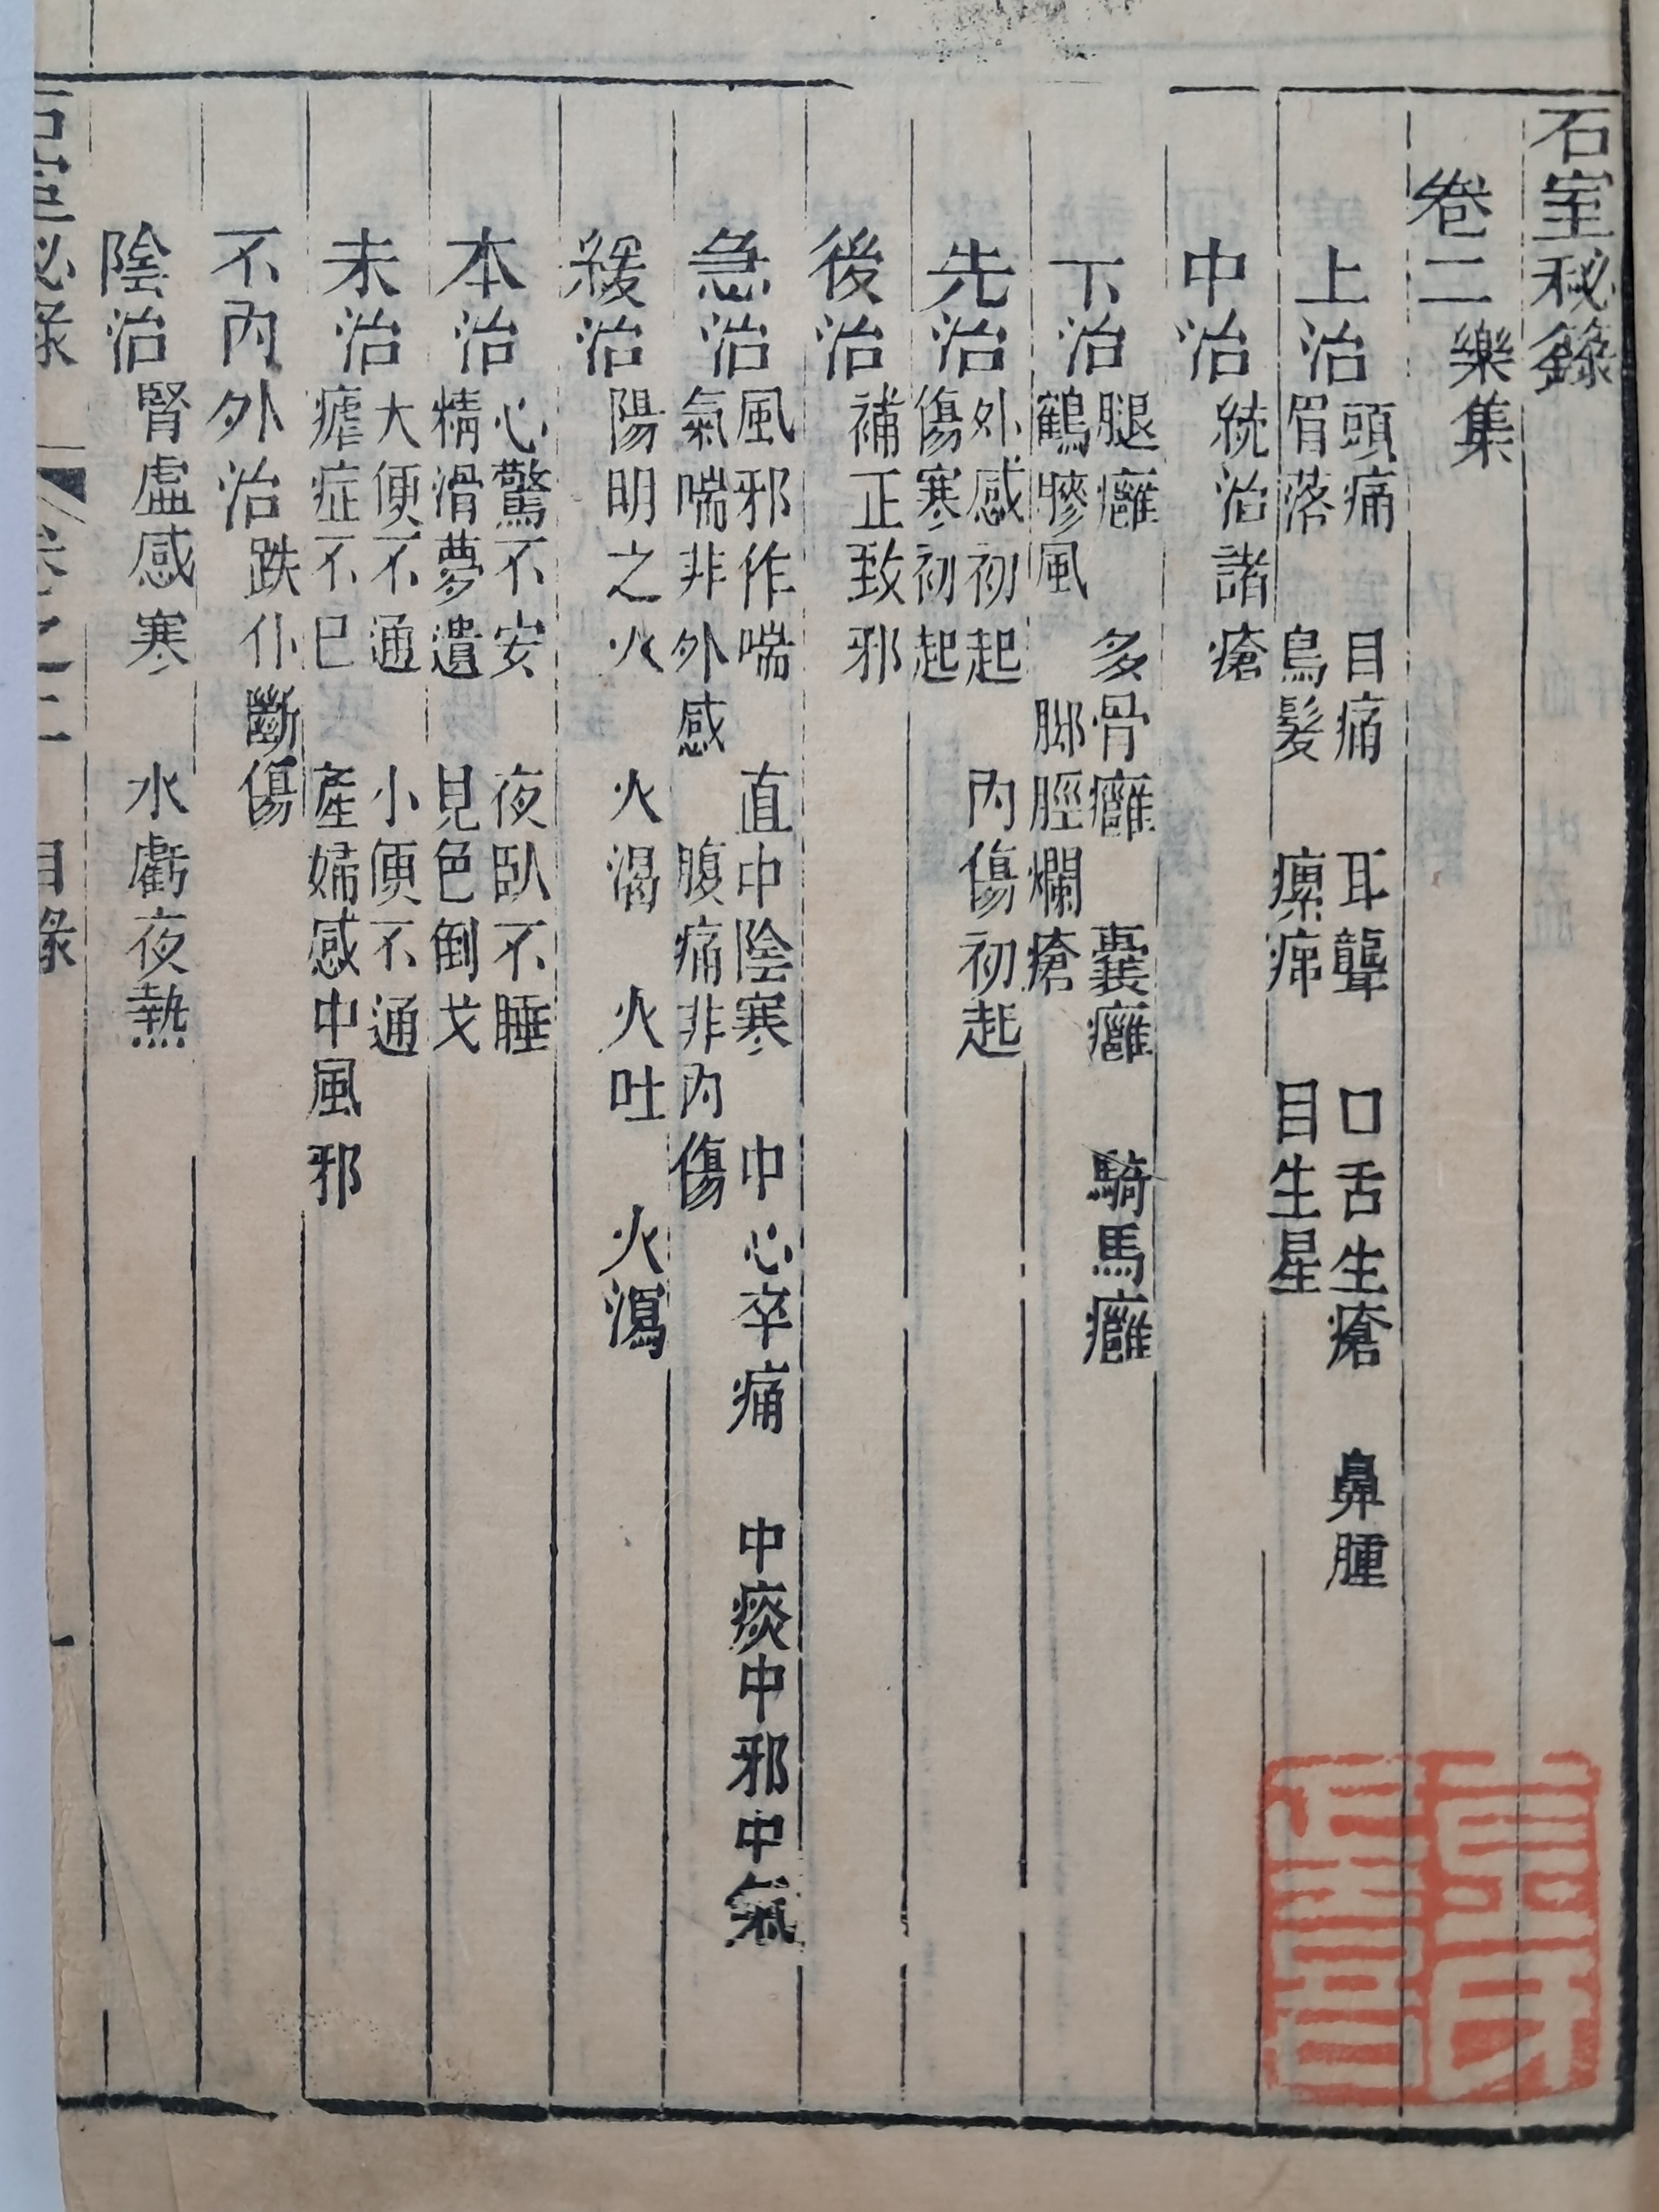 石室秘錄
卷二樂集
上治
頭痛 目痛 耳聾 口舌生瘡 鼻腫
眉落 烏髮 瘰㾰 目生星
中治 統治諸瘡
下治
腿癰 多骨癰 囊癰 騎馬癰
鶴膝風 腳脛爛瘡
先治
外感初起 內傷初起
傷寒初起
後治 補正致邪
急治
風邪作喘 直中陰寒 中心卒痛 中痰中邪中氣
氣喘非外感 腹痛非內傷
緩治 陽明之火 火渴 火吐 火瀉
本治
心驚不安 夜臥不睡
精滑夢遺 見色倒戈
末治
大便不通 小便不通
瘧症不已 產婦感中風邪
不內外治 跌仆斷傷
陰治 腎虛感寒 水虧夜熱
石室秘錄 卷之二 目錄 一